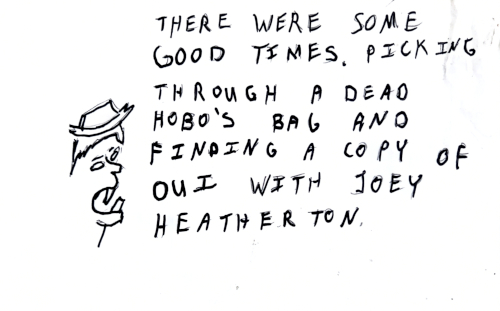 THERE WERE SOME
GOOD TIMES. PICKING
THROUGH A DEAD
HOBO'S BAG AND
FINDING A COPY OF
OUI WITH JOEY
HEATHERTON.